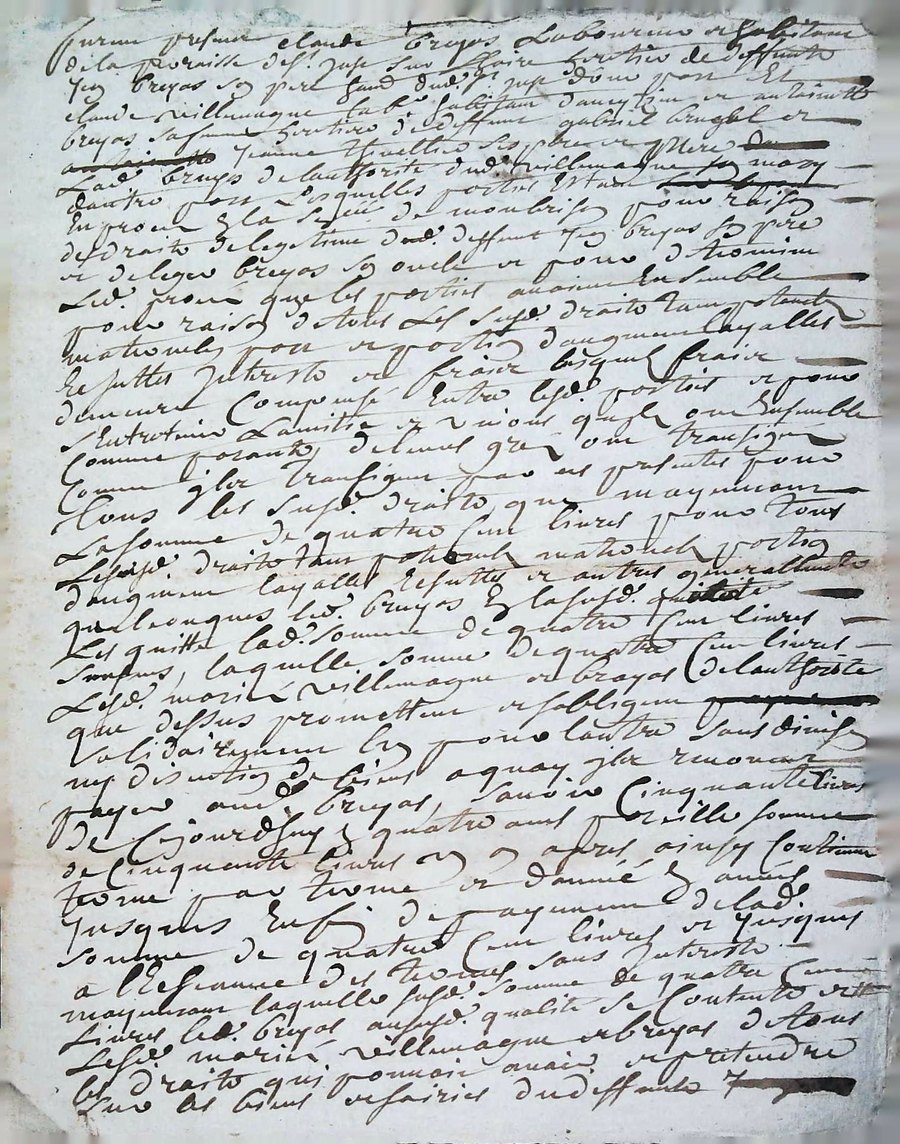 furent presents claude breyas Laboureur et habitant
de la paroisse de st. just sur Loire heritier de deffunt
Jean breyas son pere dud. st just donc part Et
claude villemagne lab. habitant daucytieu et antoinette
breyas sa femme heritiere de deffunt gabriel et
Jeanne ses pere et Mere
Lad. breyas de lauthorité dud. villemagne son mary
dautre part Lesquelles parties Estant
En procès En la de monbrison pour raison
des droits de legitime dud. deffunt Jean breyas son pere
et de breyas son oncle et pour
Led. procès que les parties avoient Ensemble
pour raison de tous Les susd. droits tant paternels
maternels part et portion daugment layalles
Et suittes Interests et fraix lesquels fraix
demeure Compensé Entre lesd. parties et pour
sEntretenir Lamitié et unions quels ont Ensemble
Comme parants, de leurs gres ont transigé
Comme ils transigent par ces presentes pour
Tous les susd. droits que moyennant
La somme de quatre Cent livres pour tous
Lesusd. droits tant paternels maternels portion
daugment layalles Et suittes et autres generallement
quelconques led. breyas En la susd. qualité
Les quitte lad. somme de quatre Cent livres
laquelle somme de quatre Cent livres
Lesd. mariés villemagne et breyas de lauthorité
que dessus promettent et sobligent
solidairement Lun pour lautre sans division
ny discution de biens a quoy ils renoncent
payer aud. breyas, savoir Cinquante livres
de Cejourdhuy En quatre ans pareille somme
de Cinquante livres un an apres ainsy Continuer
terme par terme et danné En année
Jusques Enfin de payement de lad.
somme de quatre Cent livres et Jusques
a lEcheance des termes sans Interests
moyennant laquelle susd. somme de quatre Cent
Livres led. breyas aususd. qualité se Contente et
Lesd. mariés villemagne et breyas de tous
les droits qui pouvoit avoir et pretendre
sur les biens et hoiries dudeffunt